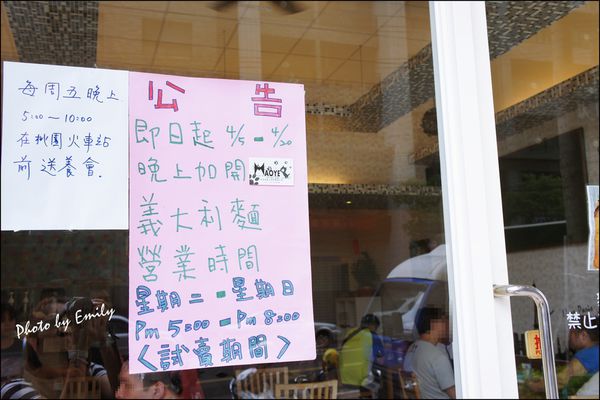 每周五晚上
5:00~10:00
在桃園火車站
前送養會.
公告
即日起 4/5 - 4/20
晚上加開
MAOYE
義大利麵
營業時間
星期二 - 星期日
Pm 5:00 - Pm 8:00
<試賣期間>
Photo by Emily
禁止